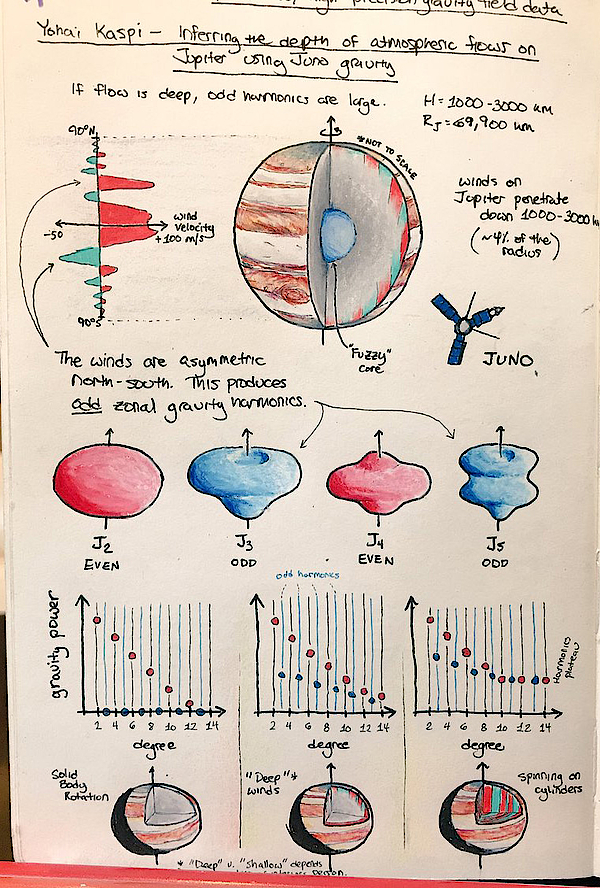 high precision gravity field data
Yohai Kaspi - Inferring the depth of atmospheric flows on
Jupiter using Juno gravity
If flow is deep, odd harmonics are large.
H = 1000-3000 km
RJ = 69,900 km
90°N
*NOT TO SCALE
winds on
Jupiter penetrate
down 1000-3000 km
(~4% of the radius)
-50
wind
velocity
+100 m/s
90°S
"Fuzzy"
core
JUNO
The winds are asymmetric
north-south. This produces
odd zonal gravity harmonics.
J2
EVEN
J3
ODD
J4
EVEN
J5
ODD
gravity power
2 4 6 8 10 12 14
degree
odd harmonics
2 4 6 8 10 12 14
degree
Harmonics
plateau
2 4 6 8 10 12 14
degree
Solid
Body
Rotation
"Deep"*
winds
Spinning on
cylinders
* "Deep" v. "Shallow" depends
person.